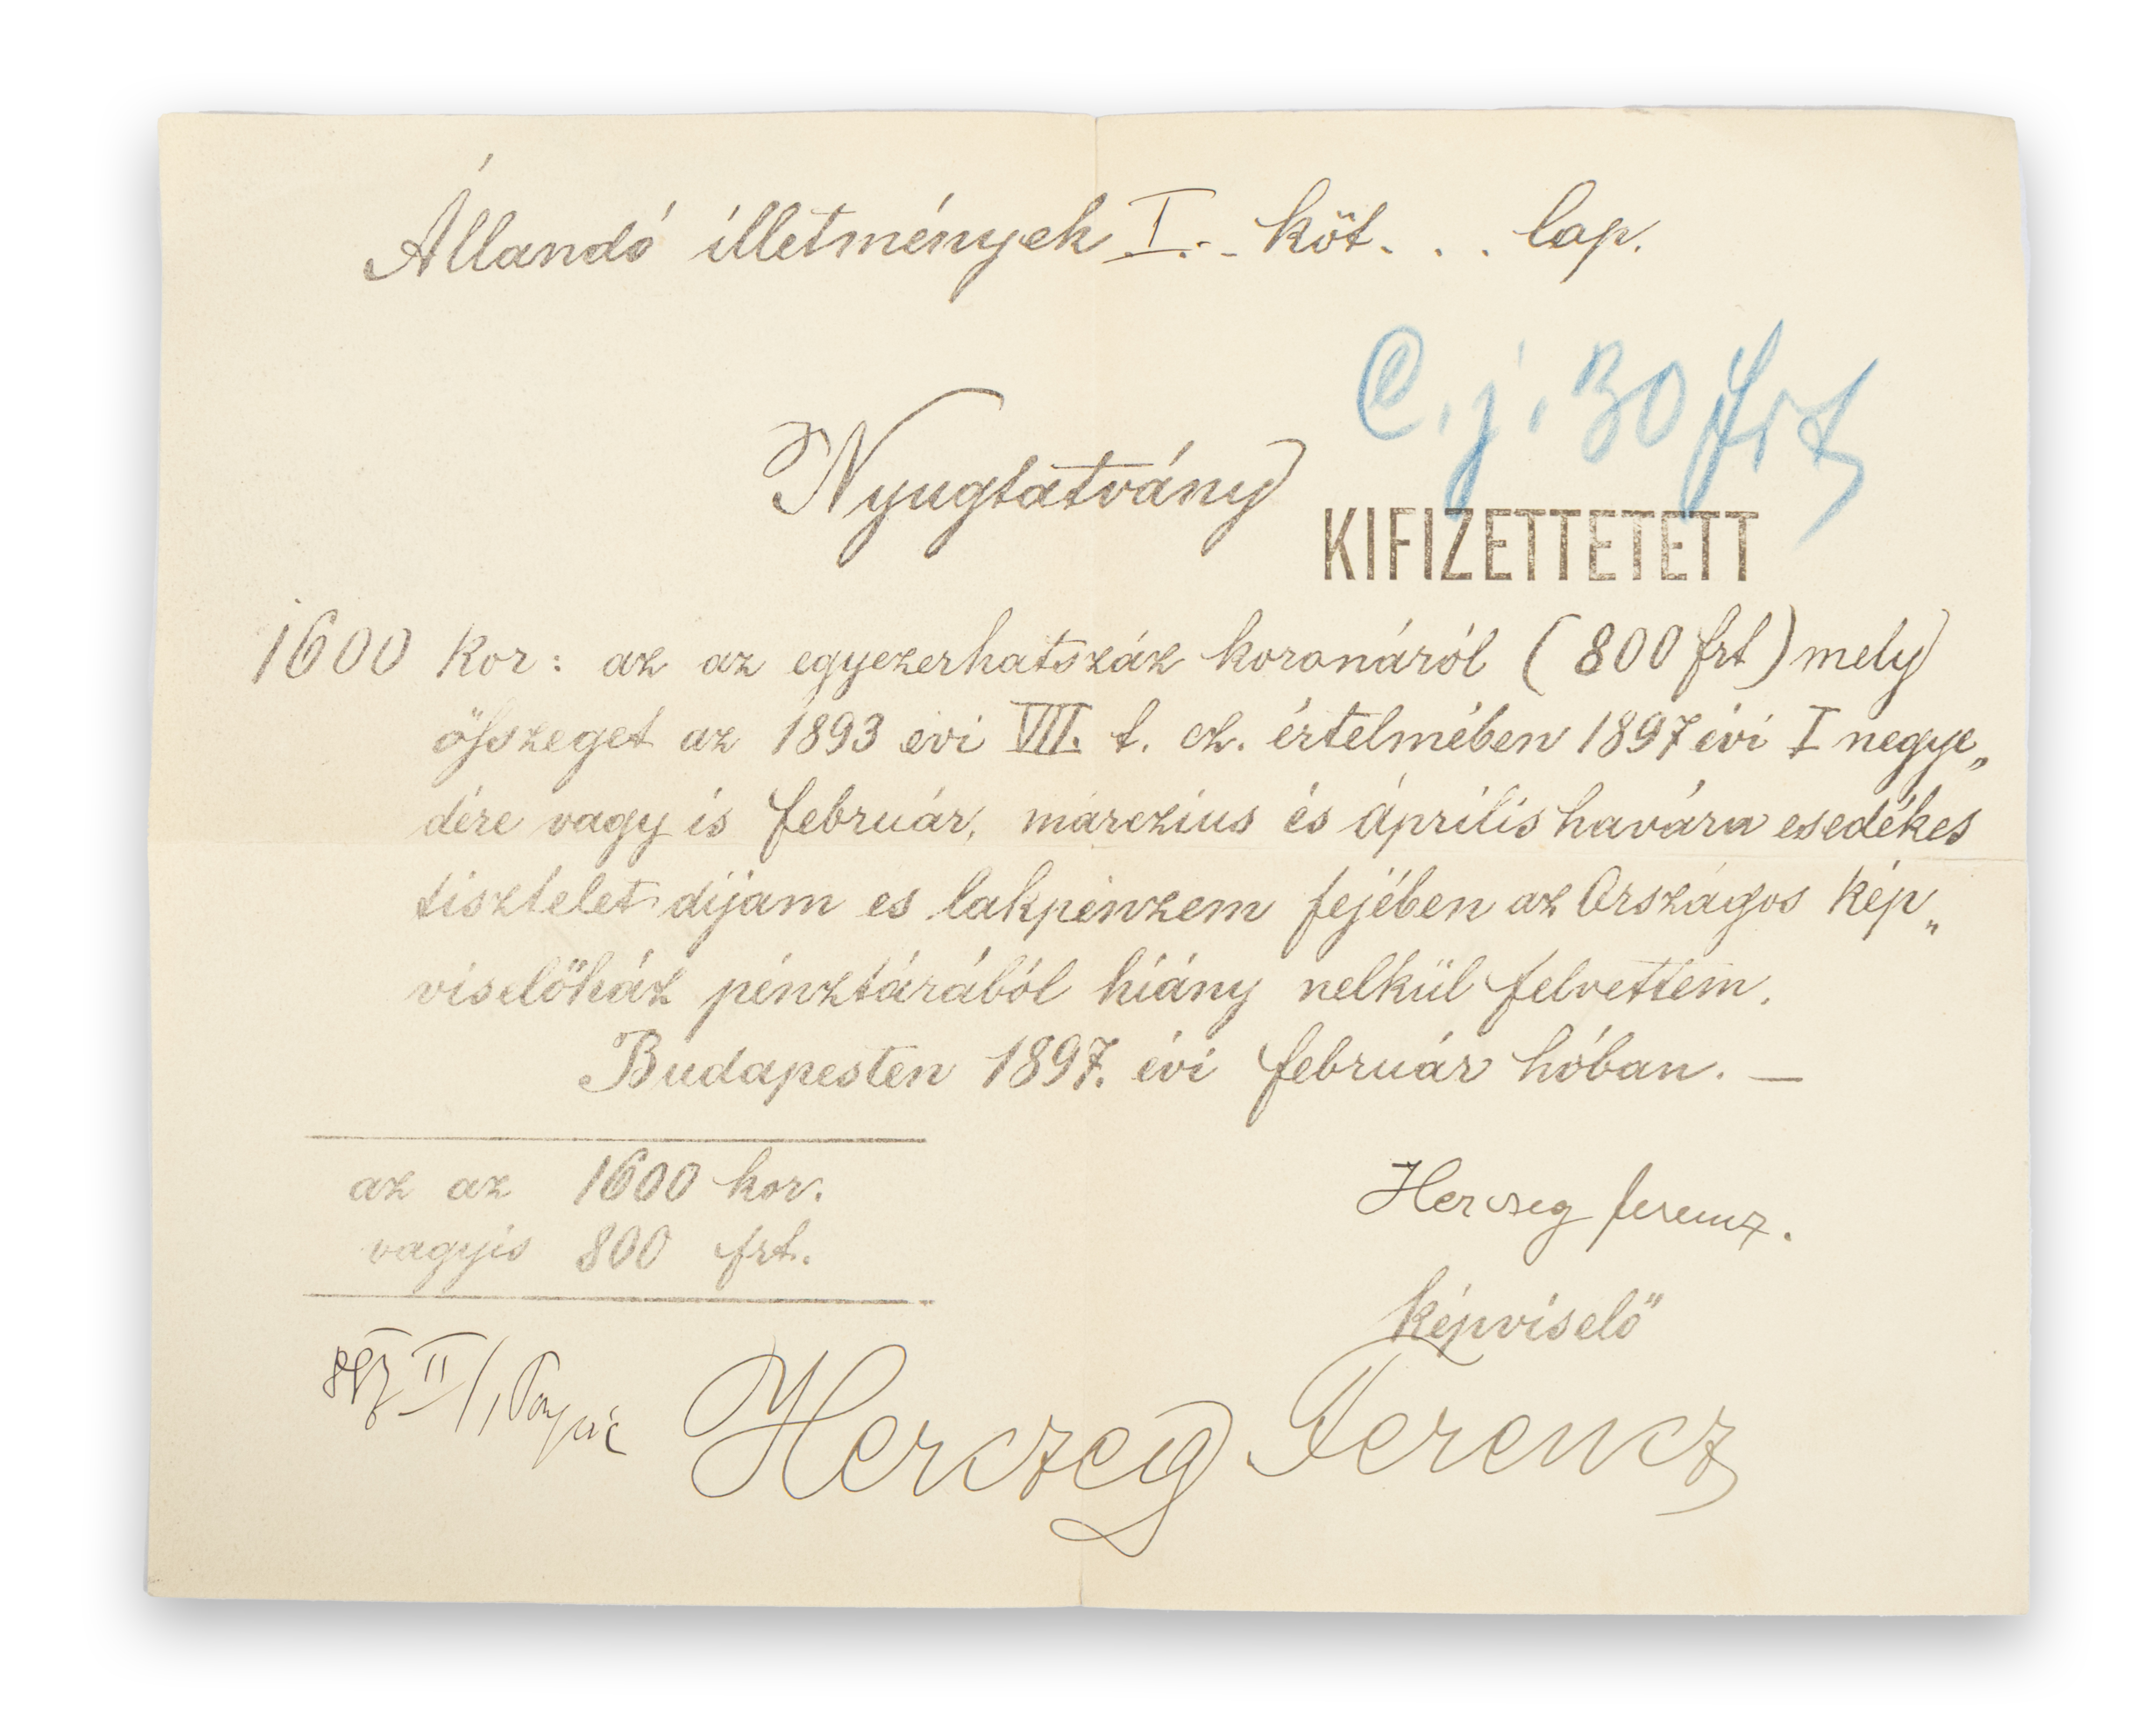 Állandó illetmények I. köt. . . lap.
C. j. 30 frt
Nyugtatvány
KIFIZETTETETT
1600 kor: az az egyezerhatszáz koronáról (800 frt) mely
összeget az 1893 évi VII. t. cz. értelmében 1897 évi I negye„
dére vagy is február, márczius és április havára esedékes
tisztelet dijam es lakpénzem fejében az Országos kép„
viselőház pénztárából hiány nelkül felvettem.
Budapesten 1897. évi február hóban. —
az az 1600 kor.
vagyis 800 frt.
Herczeg Ferencz.
képviselő
897 II/1
Herczeg Ferencz